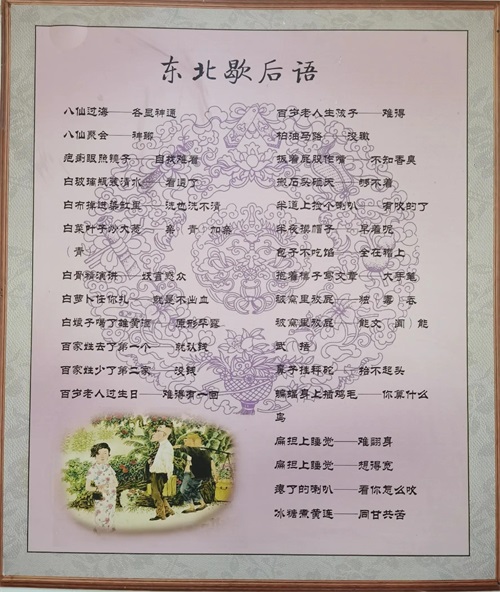 东北歇后语
八仙过海——各显神通
八仙聚会——神聊
疤瘌眼照镜子——自找难看
白玻璃瓶装清水——看透了
白布掉进染缸里——洗也洗不清
白菜叶子炒大葱——亲（青）加亲
（青）
白骨精演讲——妖言惑众
白萝卜任你扎——就是不出血
白娘子喝了雄黄酒——原形毕露
百家姓去了第一个——就认钱
百家姓少了第二家——没钱
百岁老人过生日——难得有一回
百岁老人生孩子——难得
柏油马路——没辙
拔着屁股作嘴——不知香臭
搬石头砸天——够不着
半道上捡个喇叭——有吹的了
半夜摸帽子——早着呢
包子不吃馅——全在褶上
抱着梯子写文章——大手笔
被窝里放屁——独吞
被窝里放屁——能文（闻）能
武（捂）
鼻子挂秤砣——抬不起头
蝙蝠身上插鸡毛——你算什么
鸟
扁担上睡觉——难翻身
扁担上睡觉——想得宽
瘪了的喇叭——看你怎么吹
冰糖煮黄连——同甘共苦